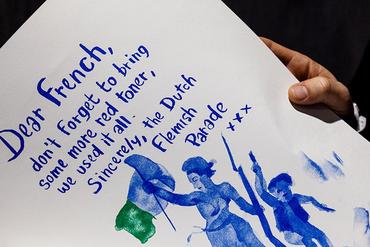 Dear French,
don't forget to bring
some more red toner,
we used it all.
Sincerely, the Dutch
Flemish
Parade
xxx